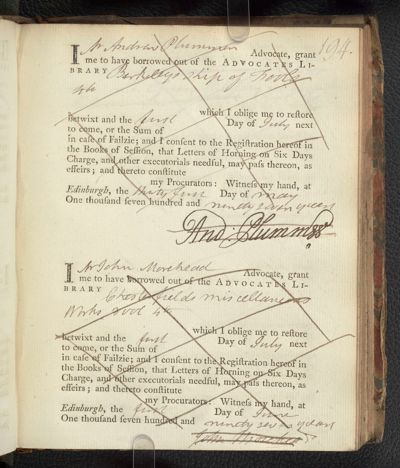 194.
I Mr Andrew Plummer Advocate, grant
me to have borrowed out of the ADVOCATES LI-
BRARY Berkleys Ship of Fools
4to
which I oblige me to reſtore
betwixt and the first Day of July next
to come, or the Sum of
in caſe of Failzie; and I conſent to the Regiſtration hereof in
the Books of Seſſion, that Letters of Horning on Six Days
Charge, and other executorials needful, may paſs thereon, as
effeirs; and thereto conſtitute
my Procurators: Witneſs my hand, at
Edinburgh, the thirty first Day of may
One thouſand ſeven hundred and ninety seven years
And: Plummer
I Mr John Morehead Advocate, grant
me to have borrowed out of the ADVOCATES LI-
BRARY Chesterfields miscellaneous
Works 4to
which I oblige me to reſtore
betwixt and the first Day of July next
to come, or the Sum of
in caſe of Failzie; and I conſent to the Regiſtration hereof in
the Books of Seſſion, that Letters of Horning on Six Days
Charge, and other executorials needful, may paſs thereon, as
effeirs; and thereto conſtitute
my Procurators: Witneſs my hand, at
Edinburgh, the first Day of June
One thouſand ſeven hundred and ninety seven years
John